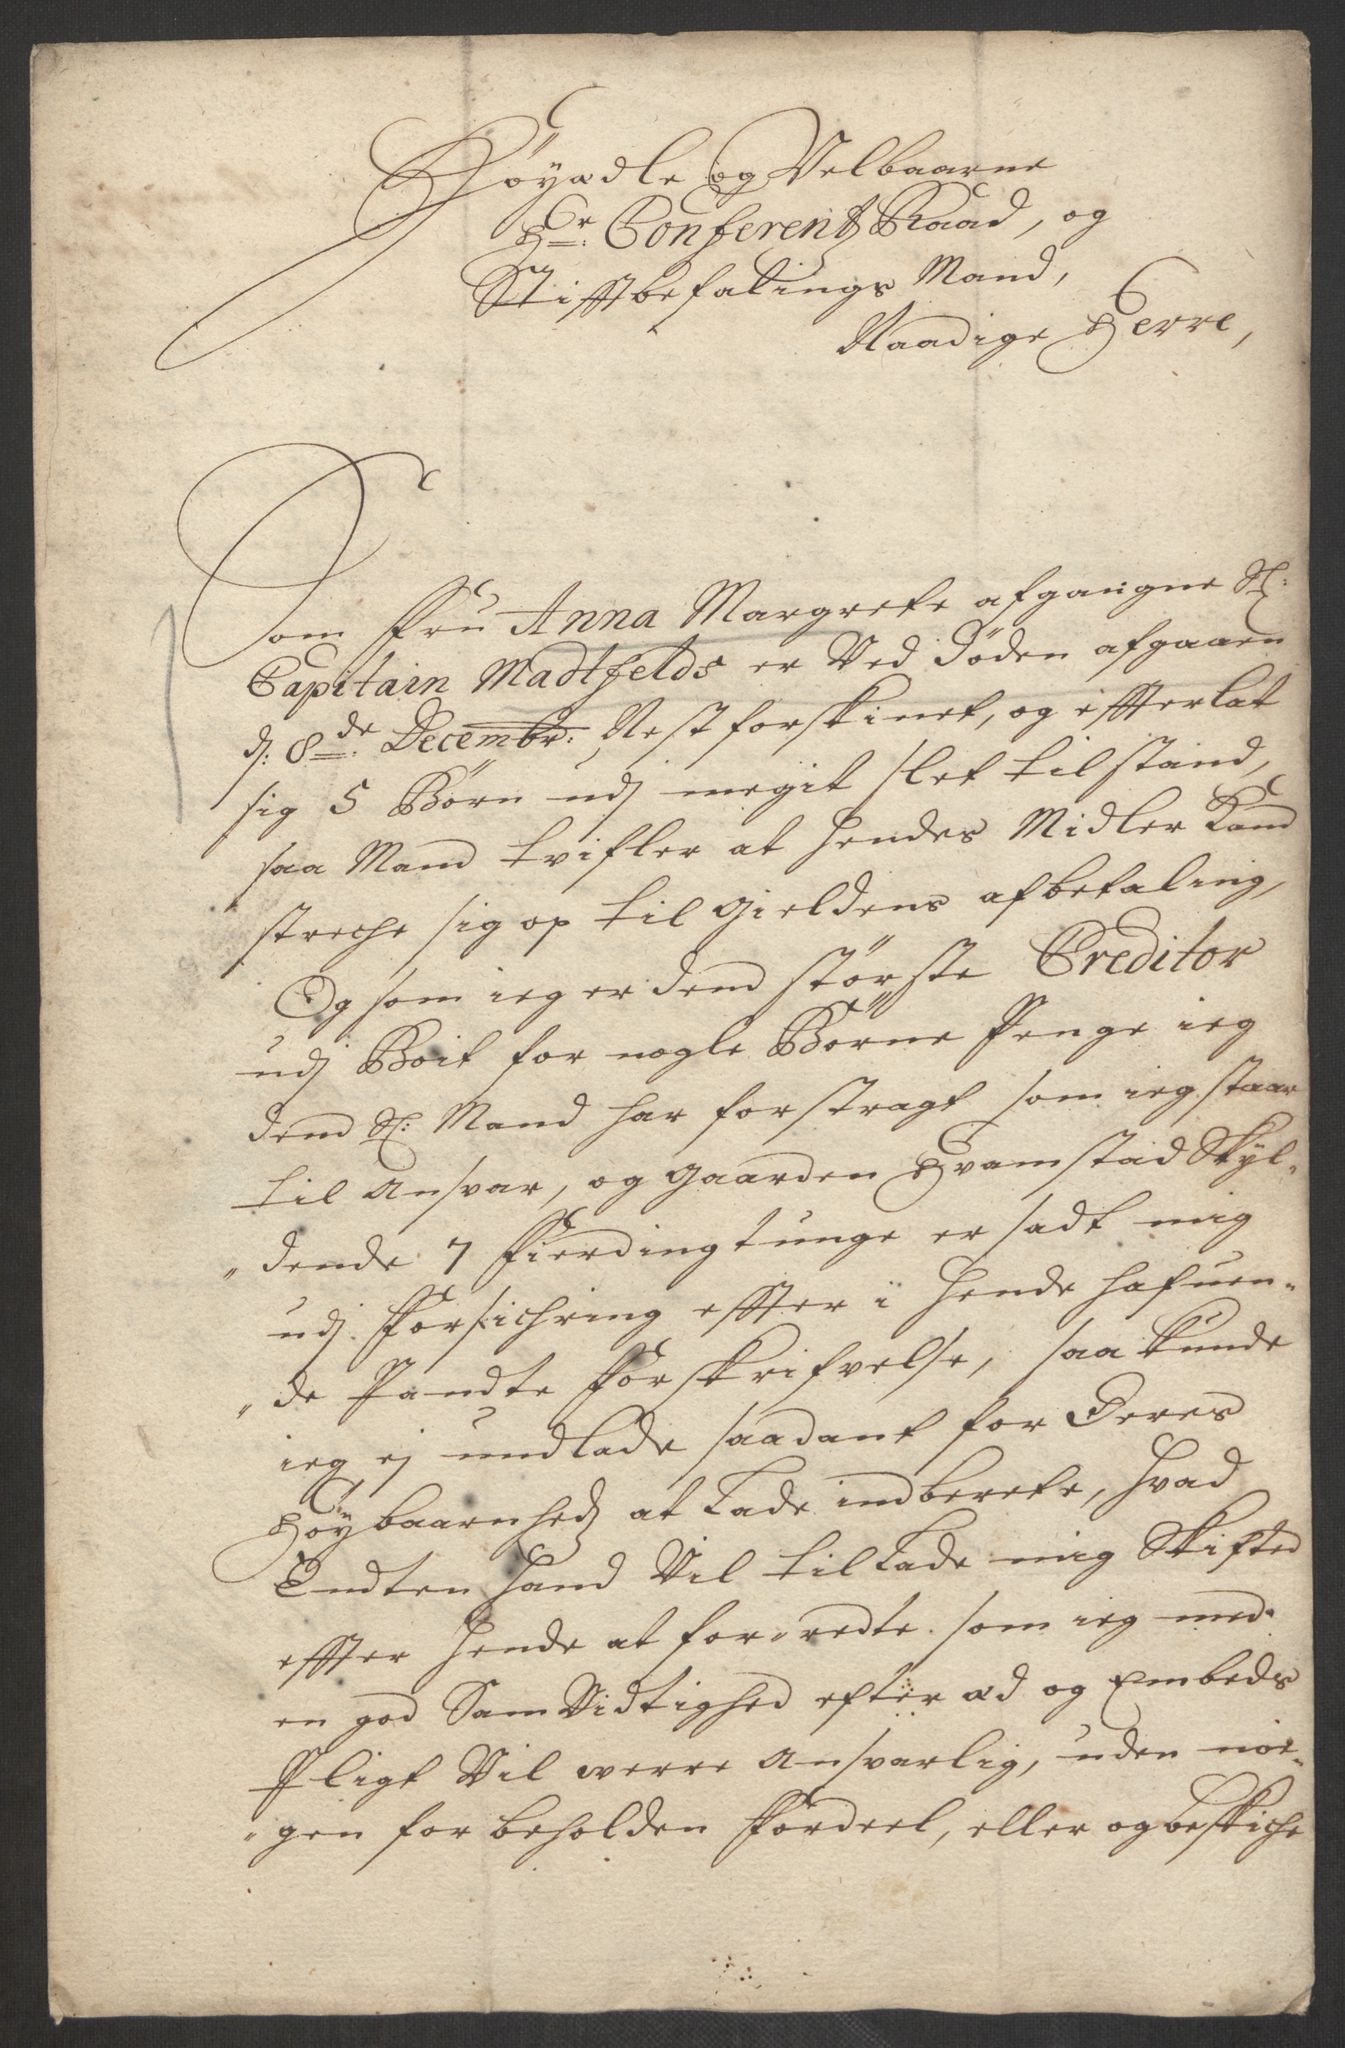 Höyædle og Velbaarne
Hr: Conferentz Raad, og
Stiftbefalings Mand,
Naadige Herre,
Som Fru Anna Margrete afgangne Sl:
Capitain Madtfelds er Ved Döden afgaaen
d: 8de: Decembr: Nest forskinet, og effterlat
sig 5 Börn udj megit slet tilstand,
saa Mand tvifler at hendes Midler Kand
streche sig op til gieldens afbetaling,
Og som ieg er dend störste Creditor
udj Boit for nogle Börne Penge ieg
dend Sl: Mand har forstragt som ieg staar
til Ansvar, og gaarden Hvamstad Skyl„
„dende 7 Fierdingtunge er sadt mig
udj Forsichring effter i hende hafuen„
„de Pandte Forskrifvelse, saa kunde
ieg ej undlade saadant for Deres
Höybaarnhed at Lade indberete, hvad
Endten hand Vil tillade mig Skiftet
effter hende at for„redte som ieg med
en god SamVidtighed efter æd og Embeds
Pligt Vil werre Ansvarlig, uden noi„
„gen forbeholden Fordeel, eller og beskiche